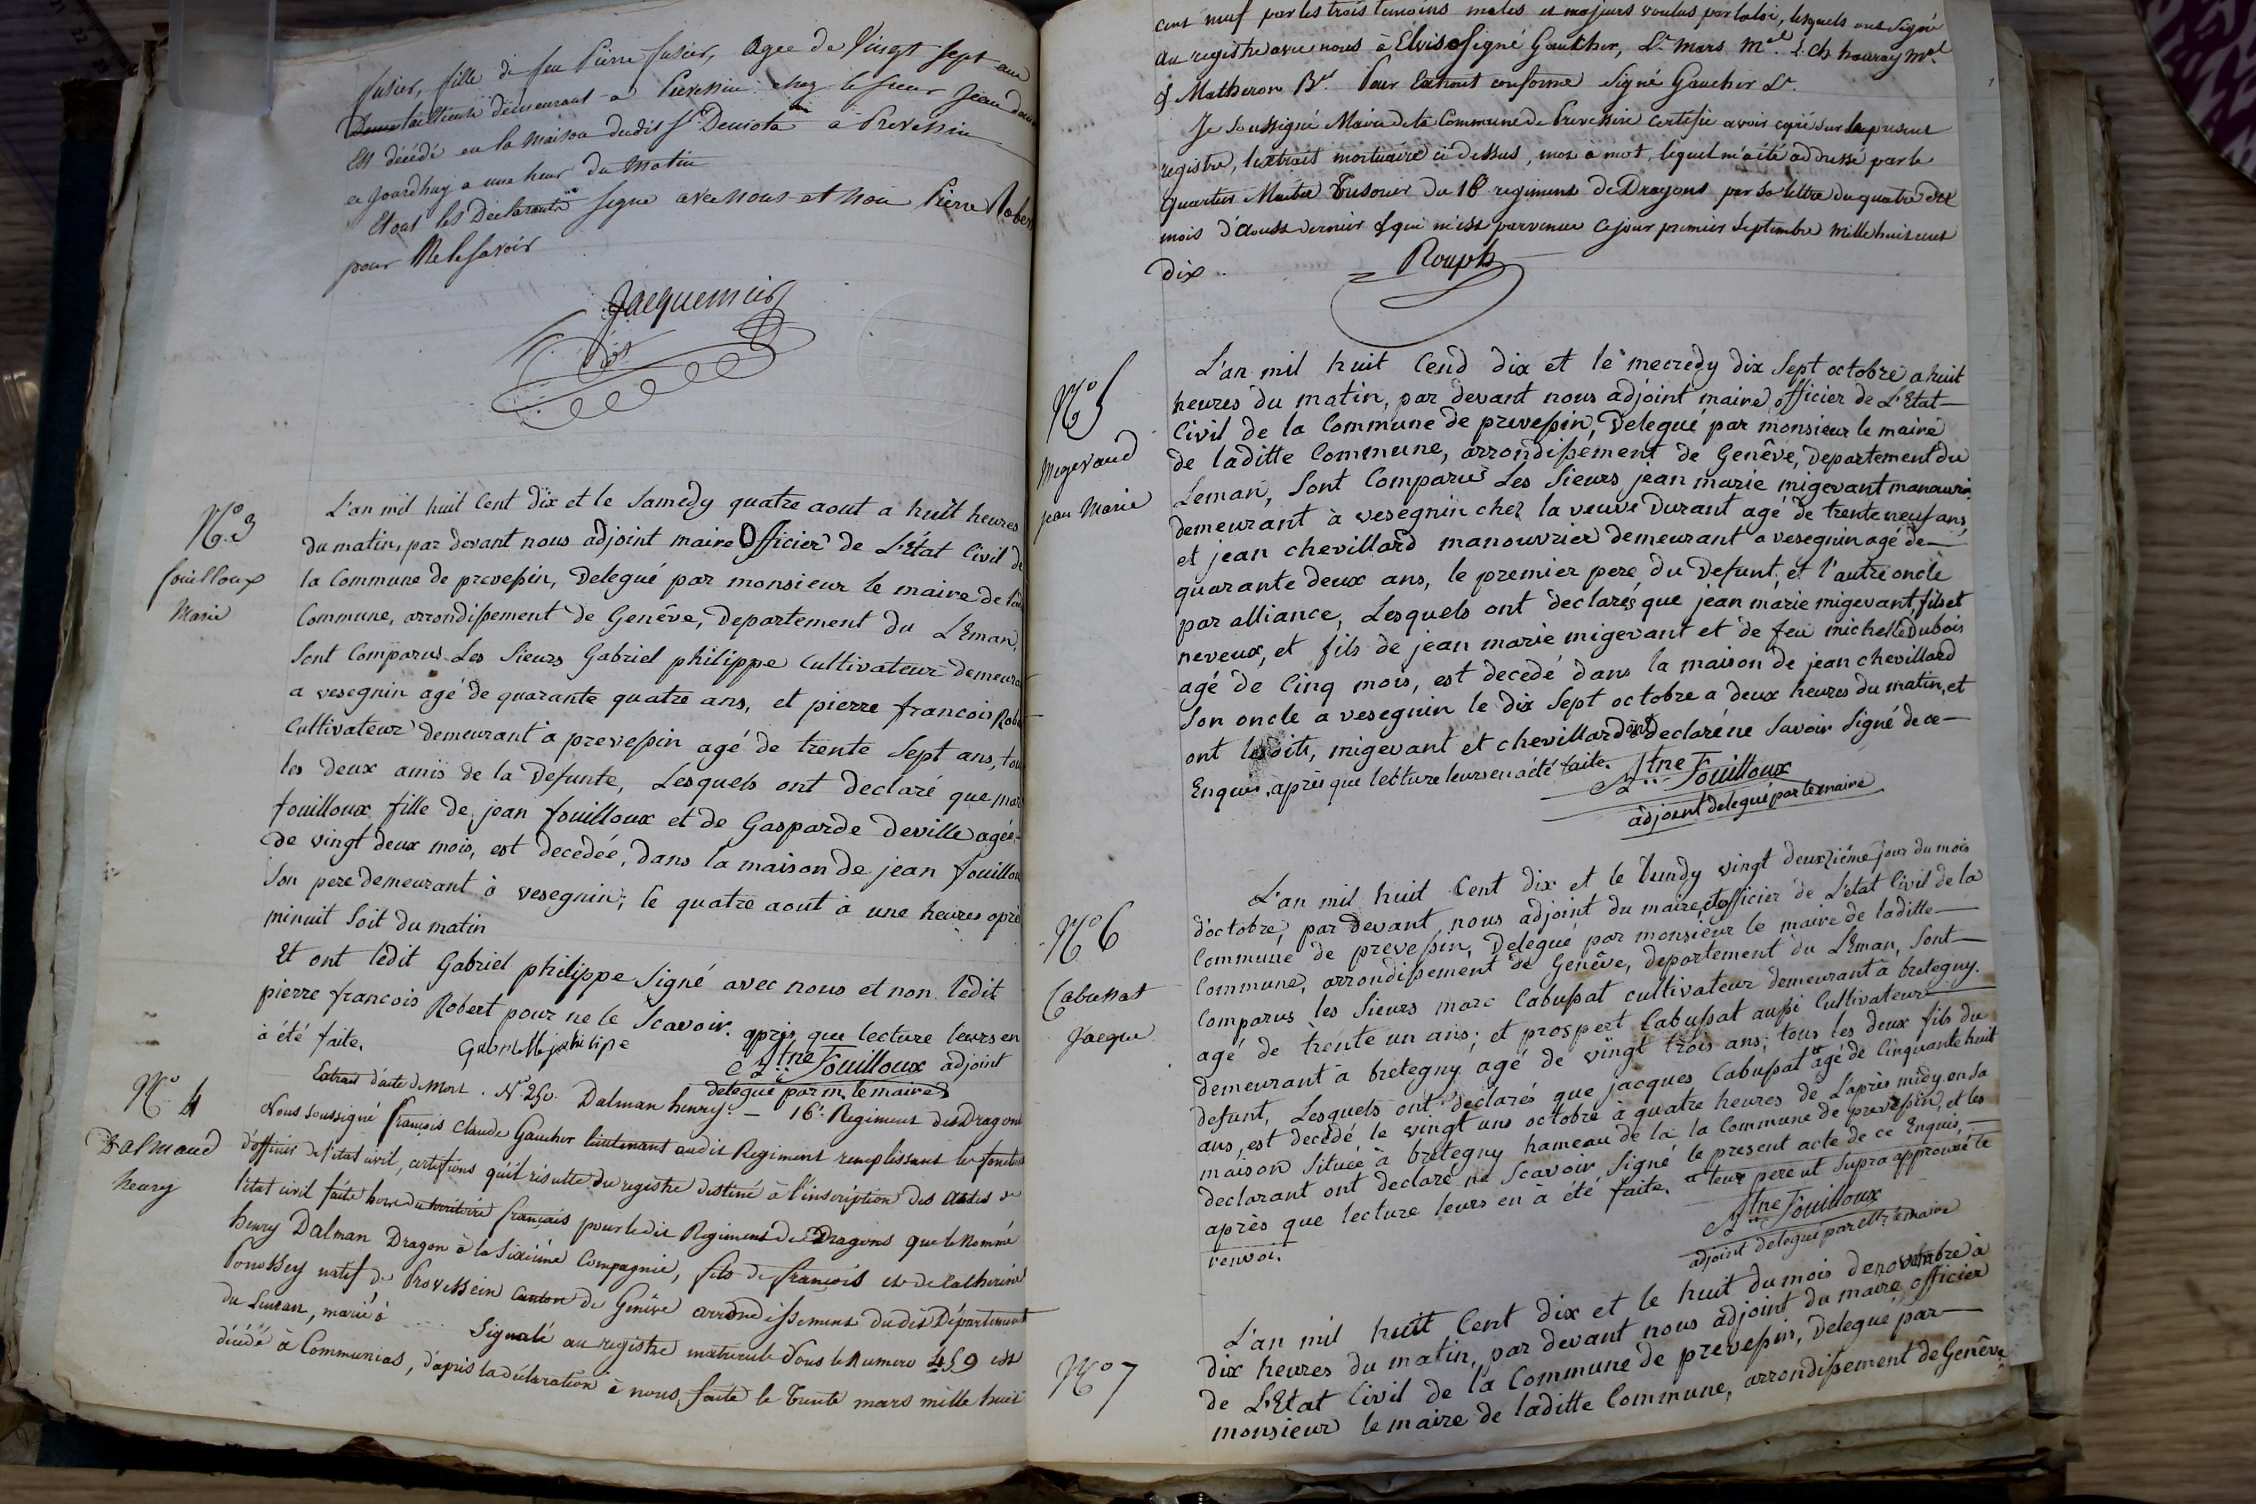 fusier, fille de feu Pierre fusier, Agée de Vingt sept ans
tailleuse demeurant a Prevessin chez le sieur Jean
Est décédé en la Maison dudit Sr Deniota a Prevessin
ce jourdhuy a une heur du Matin
Et ont les Declarants signe avec nous et non Pierre Robert
pour Ne le savoir
Jacquemier
N.° 3
fouilloux
Marie
L'an mil huit Cent dix et le Samedy quatre aout a huit heures
du matin, par devant nous adjoint maire Officier de L'État Civil de
la Commune de prevessin, Delegué par monsieur le maire de
Commune, arrondissement de Genêve, Departement du Leman,
Sont Comparus Les Sieurs Gabriel philippe Cultivateur demeurant
a vesegnin agé de quarante quatre ans, et pierre francois Robert
Cultivateur Demeurant à prevessin agé de trente Sept ans, tous
les deux amis de la Defunte, Lesquels ont declaré que marie
fouilloux fille de jean fouilloux et de Gasparde Deville agée
de vingt deux mois, est decedée, dans la maison de jean fouilloux
Son pere demeurant à vesegnin; le quatre aout à une heures après
minuit Soit du matin
Et ont ledit Gabriel philippe Signé avec nous et non ledit
pierre francois Robert pour ne le Scavoir. après que lecture leurs en
à été faite.
Fouilloux adjoint
delegué par m. le maire
N.° 4
Dalmaud
henry
Extrait d'acte de Mort. N.° 250. Dalman henry. — 16.e Regiment des Dragons
Nous soussigné françois Claude Gaucher lieutenant audit Regiment remplissant les fonctions
d'officier de l'état civil, certifions qu'il résulte du registre destiné à l'inscription des actes de
l'état civil faits hors du territoire français pour ledit Regiment de Dragons que le Nommé
henry Dalman Dragon à la Sixième Compagnie, fils de françois et de Catherine
Ponossey natif de Provessein Canton de Genêve arrondissement dudit Département
du Leman, marié à ..... Signalé au registre matricule sous le Numero 459 est
décédé à Communias, d'après la déclaration à nous faite le trente mars mille huit
cent neuf par les trois temoins males et majeurs voulus par la loi, lesquels ont Signé
au registre avec nous à Elviso Signé Gaucher, Lt. Mars Mal. L. Ch houray Mal
& Matheron Br. Pour Extrait conforme Signé Gaucher Lt.
Je Soussigné Maire de la Commune de Prevessin certifie avoir copié sur le present
registre, l'extrait mortuaire ci dessus, mot à mot, lequel m'a été addressé par le
Quartier Maitre Trésorier du 16 regiment de Dragons par sa lettre du quatre du
mois d'Aoust dernier & qui m'est parvenue ce jour premier Septembre mille huit cent
dix
Rouph
N.° 5
Megevand
jean Marie
L'an mil huit Cend dix et le mecredy dix Sept octobre a huit
heures du matin, par devant nous adjoint maire officier de L'Etat
Civil de la Commune de prevessin, Delegué par monsieur le maire
de laditte Commune, arrondissement de Genêve, Departement du
Leman, Sont Comparu Les Sieurs jean marie migevant manouvrie
demeurant à vesegnin chez la veuve Durant agé de trente neuf ans,
et jean chevillard manouvrier demeurant a vesegnin agé de
quarante deux ans, le premier pere du Defunt, et l'autre oncle
par alliance, Lesquels ont declarés que jean marie migevant, fils et
neveux, et fils de jean marie migevant et de feu michelle Dubois
agé de Cinq mois, est decedé dans la maison de jean chevillard
Son oncle a vesegnin le dix Sept octobre a deux heures du matin, et
ont lesdits, migevant et chevillard ont Declaré ne Savoir Signé de ce
Enquis, après que lecture leurs en a été faite.
Fouilloux
adjoint delegué par le maire
N.° 6
Cabussat
Jacque
L'an mil huit Cent dix et le lundy vingt deuxzième jour du mois
d'octobre, par devant nous adjoint du maire, et officier de L'etat Civil de la
Commune de prevessin, Delegué par monsieur le maire de laditte
Commune, arrondissement de Genêve, departement du Léman, Sont
Comparus les Sieurs marc Cabussat cultivateur demeurant à bretegny.
agé de trente un ans; et prospert Cabussat aussi Cultivateur
demeurant à bretegny agé de vingt trois ans; tous les deux fils du
defunt, Lesquels ont declarés que jacques Cabussat agé de Cinquante huit
ans, est decédé le vingt uns octobre à quatre heures de L'après midy en sa
maison Située à bretegny hameau de la la Commune de prevessin, et les
declarant ont declaré ne Scavoir Signé le present acte de ce Enquis,
après que lecture leurs en à été faite. leur pere ut Supra approuvé le
renvoi.
Fouilloux
adjoint delegué par Mr le maire
N.° 7
L'an mil huit Cent dix et le huit du mois de novembre à
dix heures du matin, par devant nous adjoint du maire officier
de L'Etat Civil de la Commune de prevessin, Delegué par
monsieur le maire de laditte Commune, arrondissement de Genêve